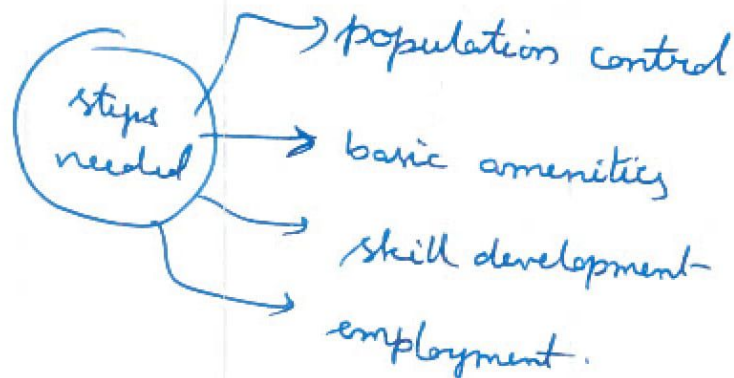 steps
needed
population control
basic amenities
skill development
employment.